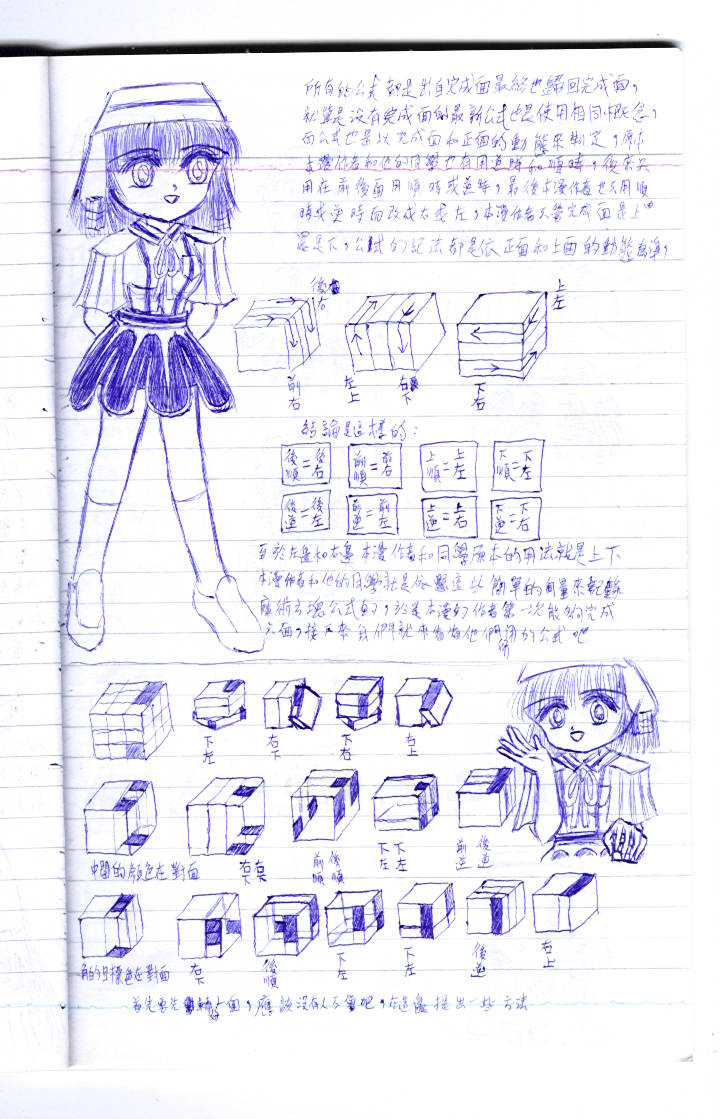 所有的公式都是出自完成面最終也歸回完成面，
就算是沒有完成面的最新公式也是使用相同概念，
而公式也是以完成面和正面的動態來制定，原本
本漫作者和他的同學也有用逆時和順時，後來只
用在前後面用順時或逆時，最後本漫作者也只用順
時或逆時而改成右或左，本漫作者不管完成面是上
還是下，公式的記法都是依正面和上面的動態為準，
後右 上左
前右 左上 右下 下右
結論是這樣的：
後順=後右 前順=前右 上順=上左 下順=下左
後逆=後左 前逆=前左 上逆=上右 下逆=下右
至於左盤和右盤本漫作者和同學原本的用法就是上下
本漫作者和他的同學就是依照這些簡單的向量來記錄
魔術方塊公式的，於是本漫的作者第一次能夠完成
六面，接下來我們就來看看他們用的公式吧
下左 右下 下右 右上
中間的顏色在對面 右下 右下 前順 後順 下左 下左 前逆 後逆
角的目標色在對面 右下 後順 下左 下左 後逆 右上
首先要先轉好一面，應該沒有人不會吧，在這邊提出一些方法